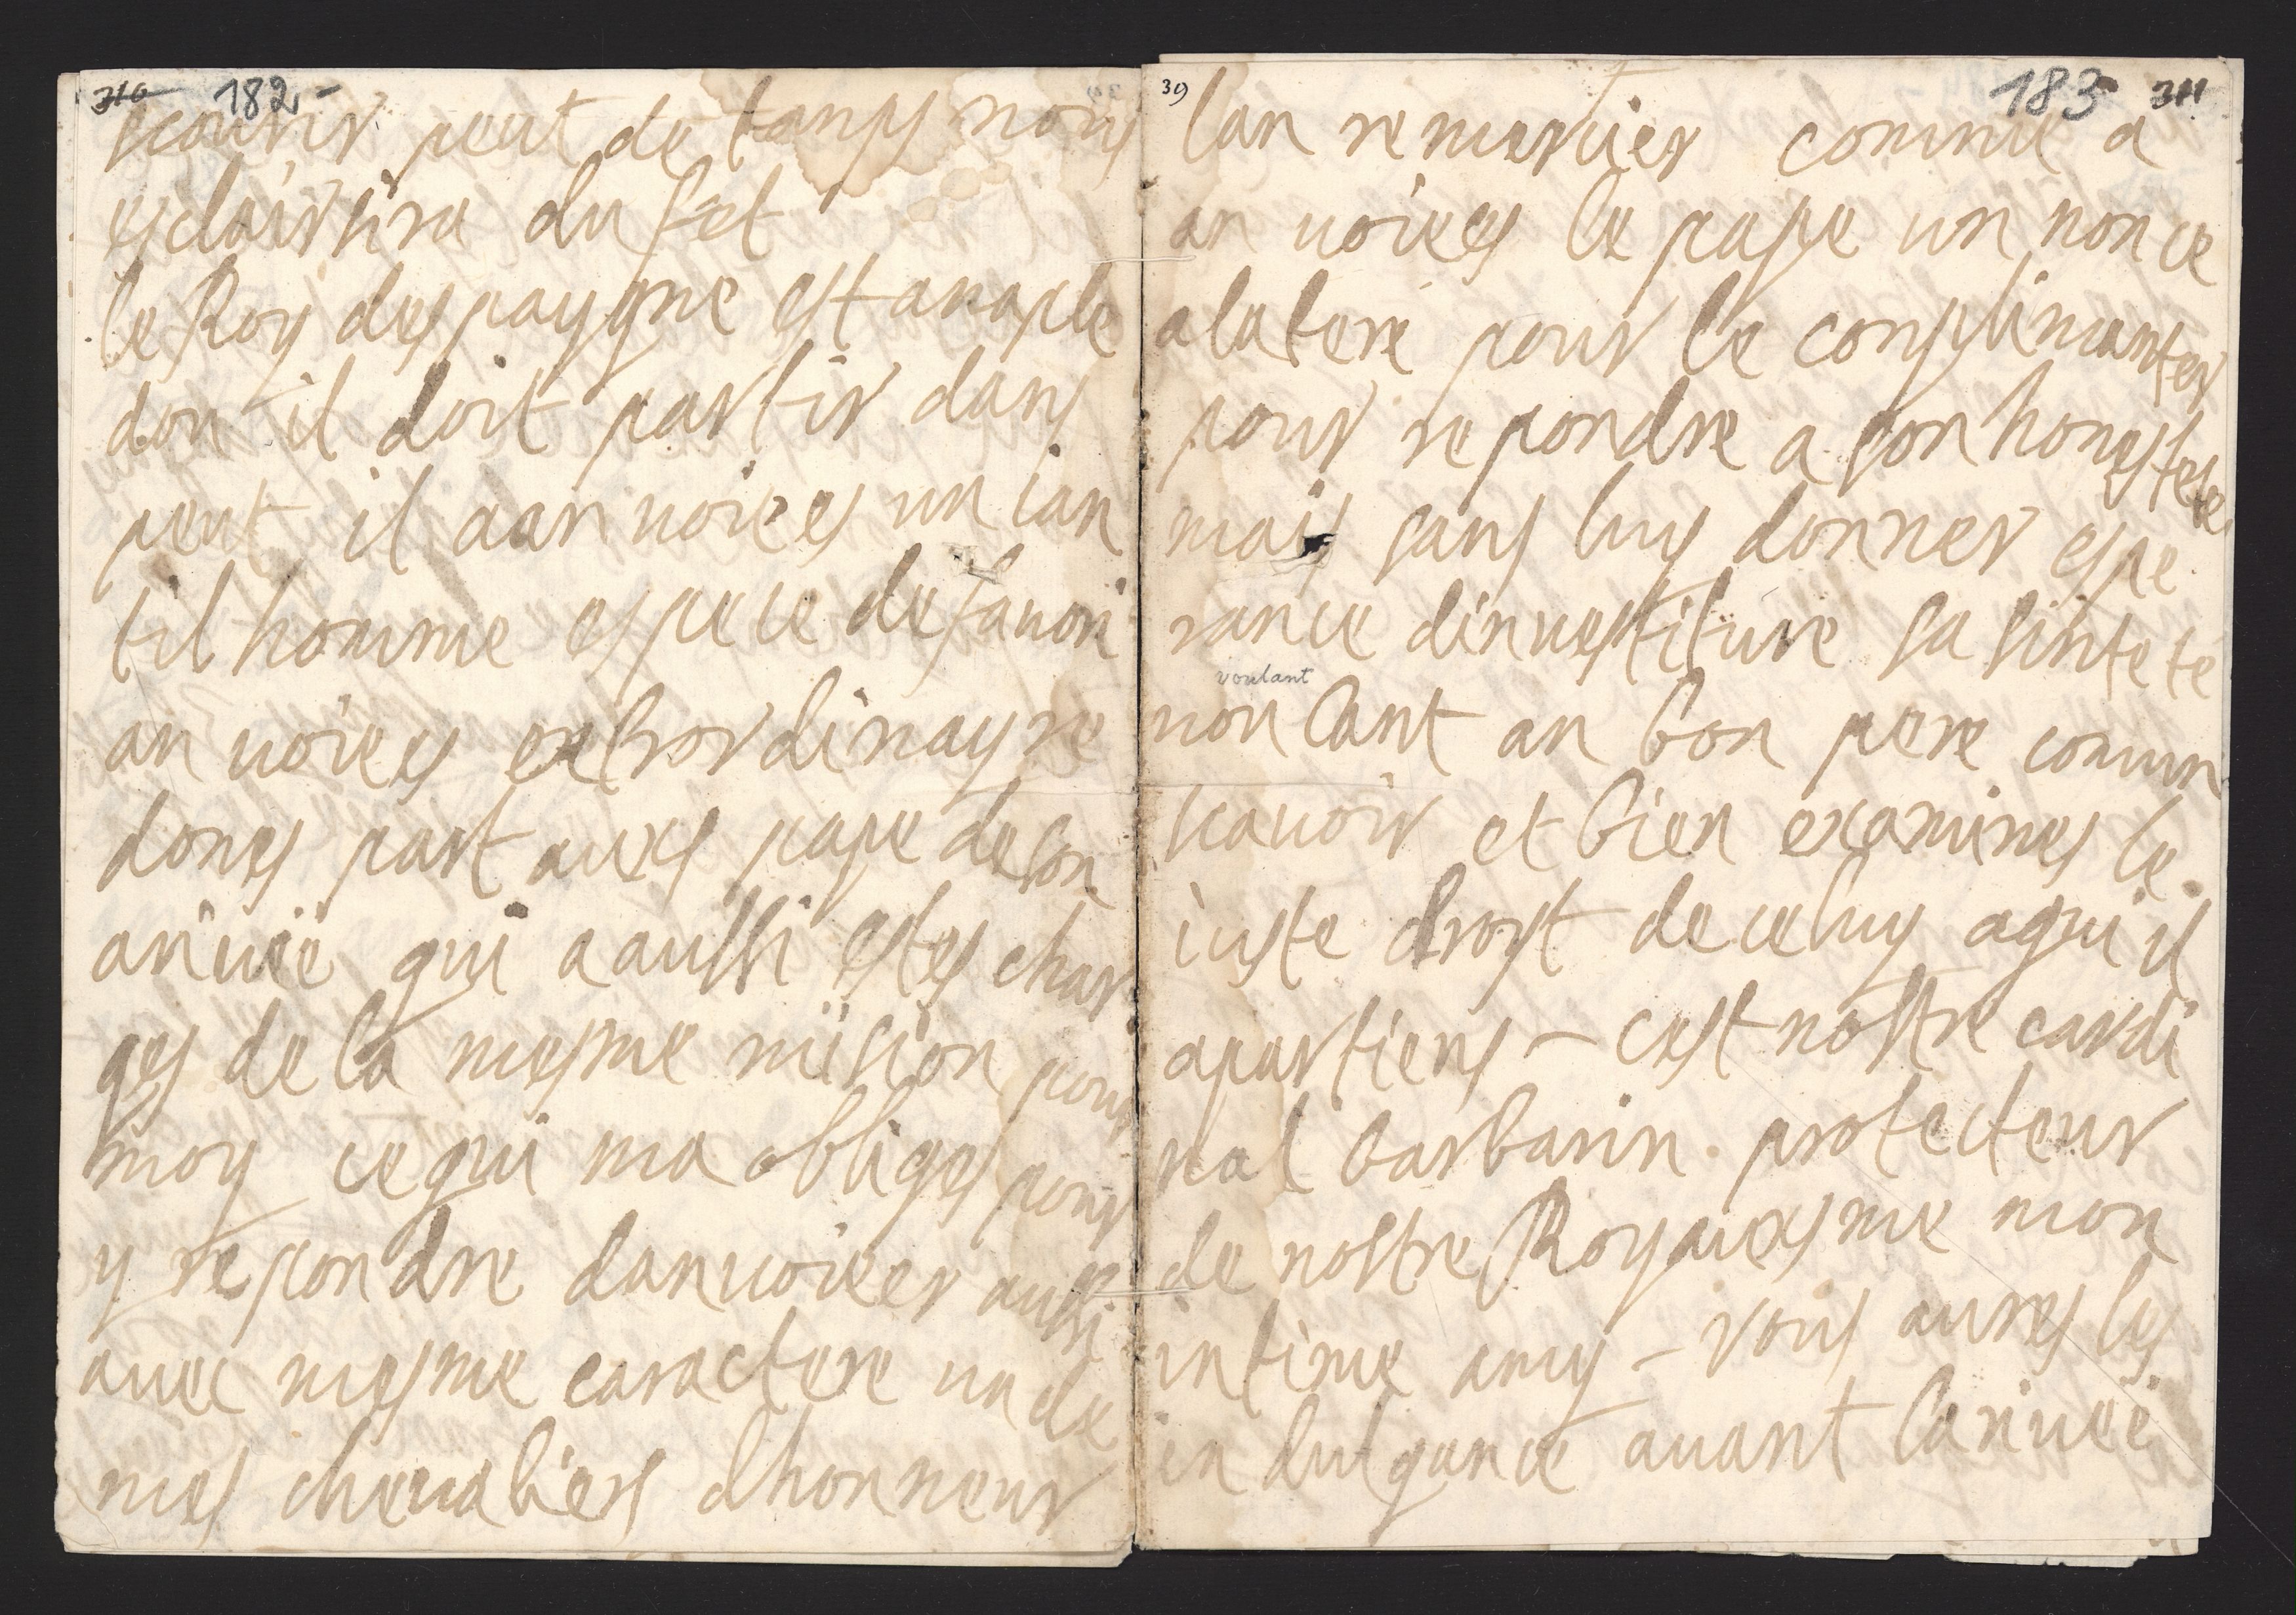 310 182 -
scouvir peut de tamps nous
esclairsira du fet
le Roy despaygne est anaple
don il doit partir dans
peut il a anvoies un ian
til homme espece de favori
an voies extrordinayre
dones part aux pape de son
arivée qui a aussi estes char
ges de la mesme mision pour
moy ce qui ma obliges pour
y repondre danvoieer aussi
avec mesme caractere un de
mes chevaliers dhonneur
39 183 311
lan remercier comme a
an voiees le pape un nonce
alatere pour le complimanter
pour repondre a son honestete
mais sans luy donner espe
rance dinvestiture sa sintete
voulant
voulant an bon pere comun
scavoir et bien examines le
iuste droyt de celuy a qui il
apartiens – cest nostre cardi
nal barbarin . protecteur
de nostre Royauxsme mon
intime amy – vous aures les
indulgance avant larivée